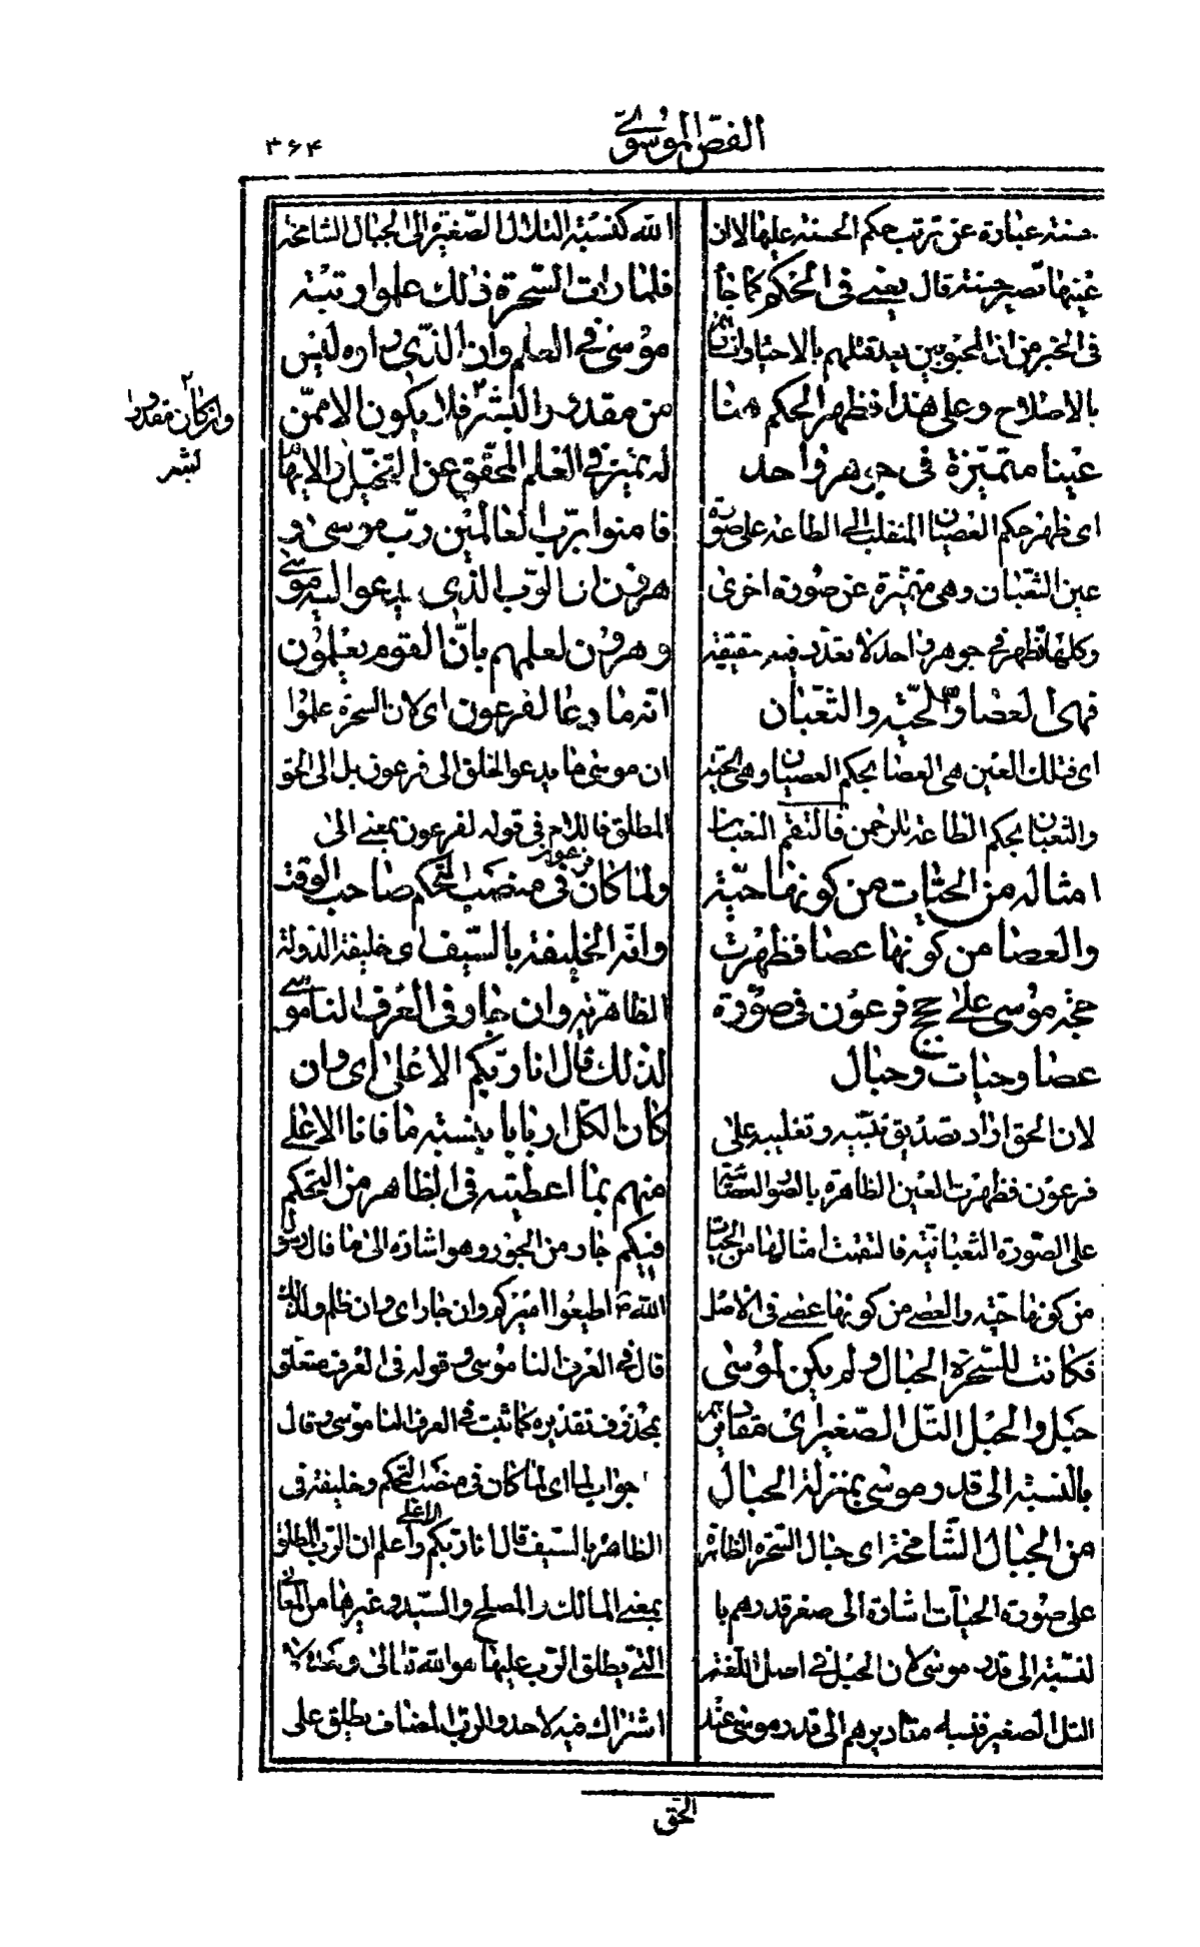 الفص الموسوي
۳۶۴
حسنة عبارة عن ترتب حكم الحسنة عليها لا ان
عينها تصير حسنة قال يعني في الحكم كما جاء
في الخبر من ان المحبوبين بعد قتلهم بالاحياء
بالاصلاح وعلى هذا فظهر الحكم هنا
عينا متميزة في جوهر واحد
اى ظهر حكم العصيان المنقلب الى الطاعة على صورة
عين الثعبان وهى متميزة عن صورة اخرى
وكلها تظهر في جوهر واحد لا تعدد فيه حقيقة
فهى العصا والحية والثعبان
اى فتلك العين هى العصا بحكم العصيان وهى الحية
والثعبان بحكم الطاعة للرحمن فالتقم الثعبان
امثاله من الحيات من كونها حية
والعصا من كونها عصا فظهرت
حجة موسى على حجج فرعون في صورة
عصا وحيات وحبال
لان الحق اراد تصديق نبيه وتغليبه على
فرعون فظهرت العين الظاهرة بالصور العصائية
على الصورة الثعبانية فالتقمت امثالها من الحيات
من كونها حية والعصى من كونها عصى في الاصل
فكانت للسحرة الحبال ولم يكن لموسى
حبل والحبل التل الصغير اى مقاديرهم
بالنسبة الى قدر موسى بمنزلة الحبال
من الجبال الشامخة اى حبال السحرة الظاهرة
على صورة الحيات اشارة الى صغر قدرهم با
لنسبة الى قدر موسى لان الحبل في اصل اللغة
التل الصغير فنسبة مقاديرهم الى قدر موسى عند
الله كنسبة التلال الصغيرة الى الجبال الشامخة
فلما رات السحرة ذلك علموا رتبة
موسى في العلم وان الذي راوه ليس
من مقدور البشر فلا يكون الا ممن
له تميز في العلم المحقق عن التخيل والايهام
فامنوا برب العالمين رب موسى و
هرون اى الرب الذي يدعو اليه موسى
وهرون لعلمهم بان القوم يعلمون
انه ما دعا لفرعون اى لان السحرة علموا
ان موسى ما يدعو الخلق الى فرعون بل الى الحق
المطلق فاللام في قوله لفرعون بمعنى الى
ولما كان فرعون في منصب التحكم صاحب الوقت
وانه الخليفة بالسيف اى خليفة الدولة
الظاهرية وان جار في العرف الناموسى
لذلك قال انا ربكم الاعلى اى وان
كان الكل اربابا بنسبة ما فانا الاعلى
منهم بما اعطيته في الظاهر من التحكم
فيكم جار من الجور وهو اشارة الى ما قال رسول
الله ص اطيعوا اميركم وان جار اى وان ظلم ولذلك
قال في العرف الناموسى وقوله في العرف متعلق
بمحذوف تقديره كما ثبت في العرف الناموسى وقال
جواب لما اى لما كان في منصب التحكم وخليفة في
الظاهر بالسيف قال انا ربكم الاعلى واعلم ان الرب المطلق
بمعنى المالك والمصلح والسيد وغيرها من المعاني
التي يطلق الرب عليها هو الله تعالى
اشتراك فيه لاحد والرب المضاف يطلق على
وان كان مقدورا
لبشر
الحق